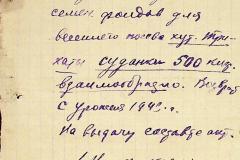 семен. фондов для
весеннего посева хут. Три-
хаты суданки 500 килг.
взаимообразно. Возврат
с урожая 1942 г.
На выдачу составьте акт.